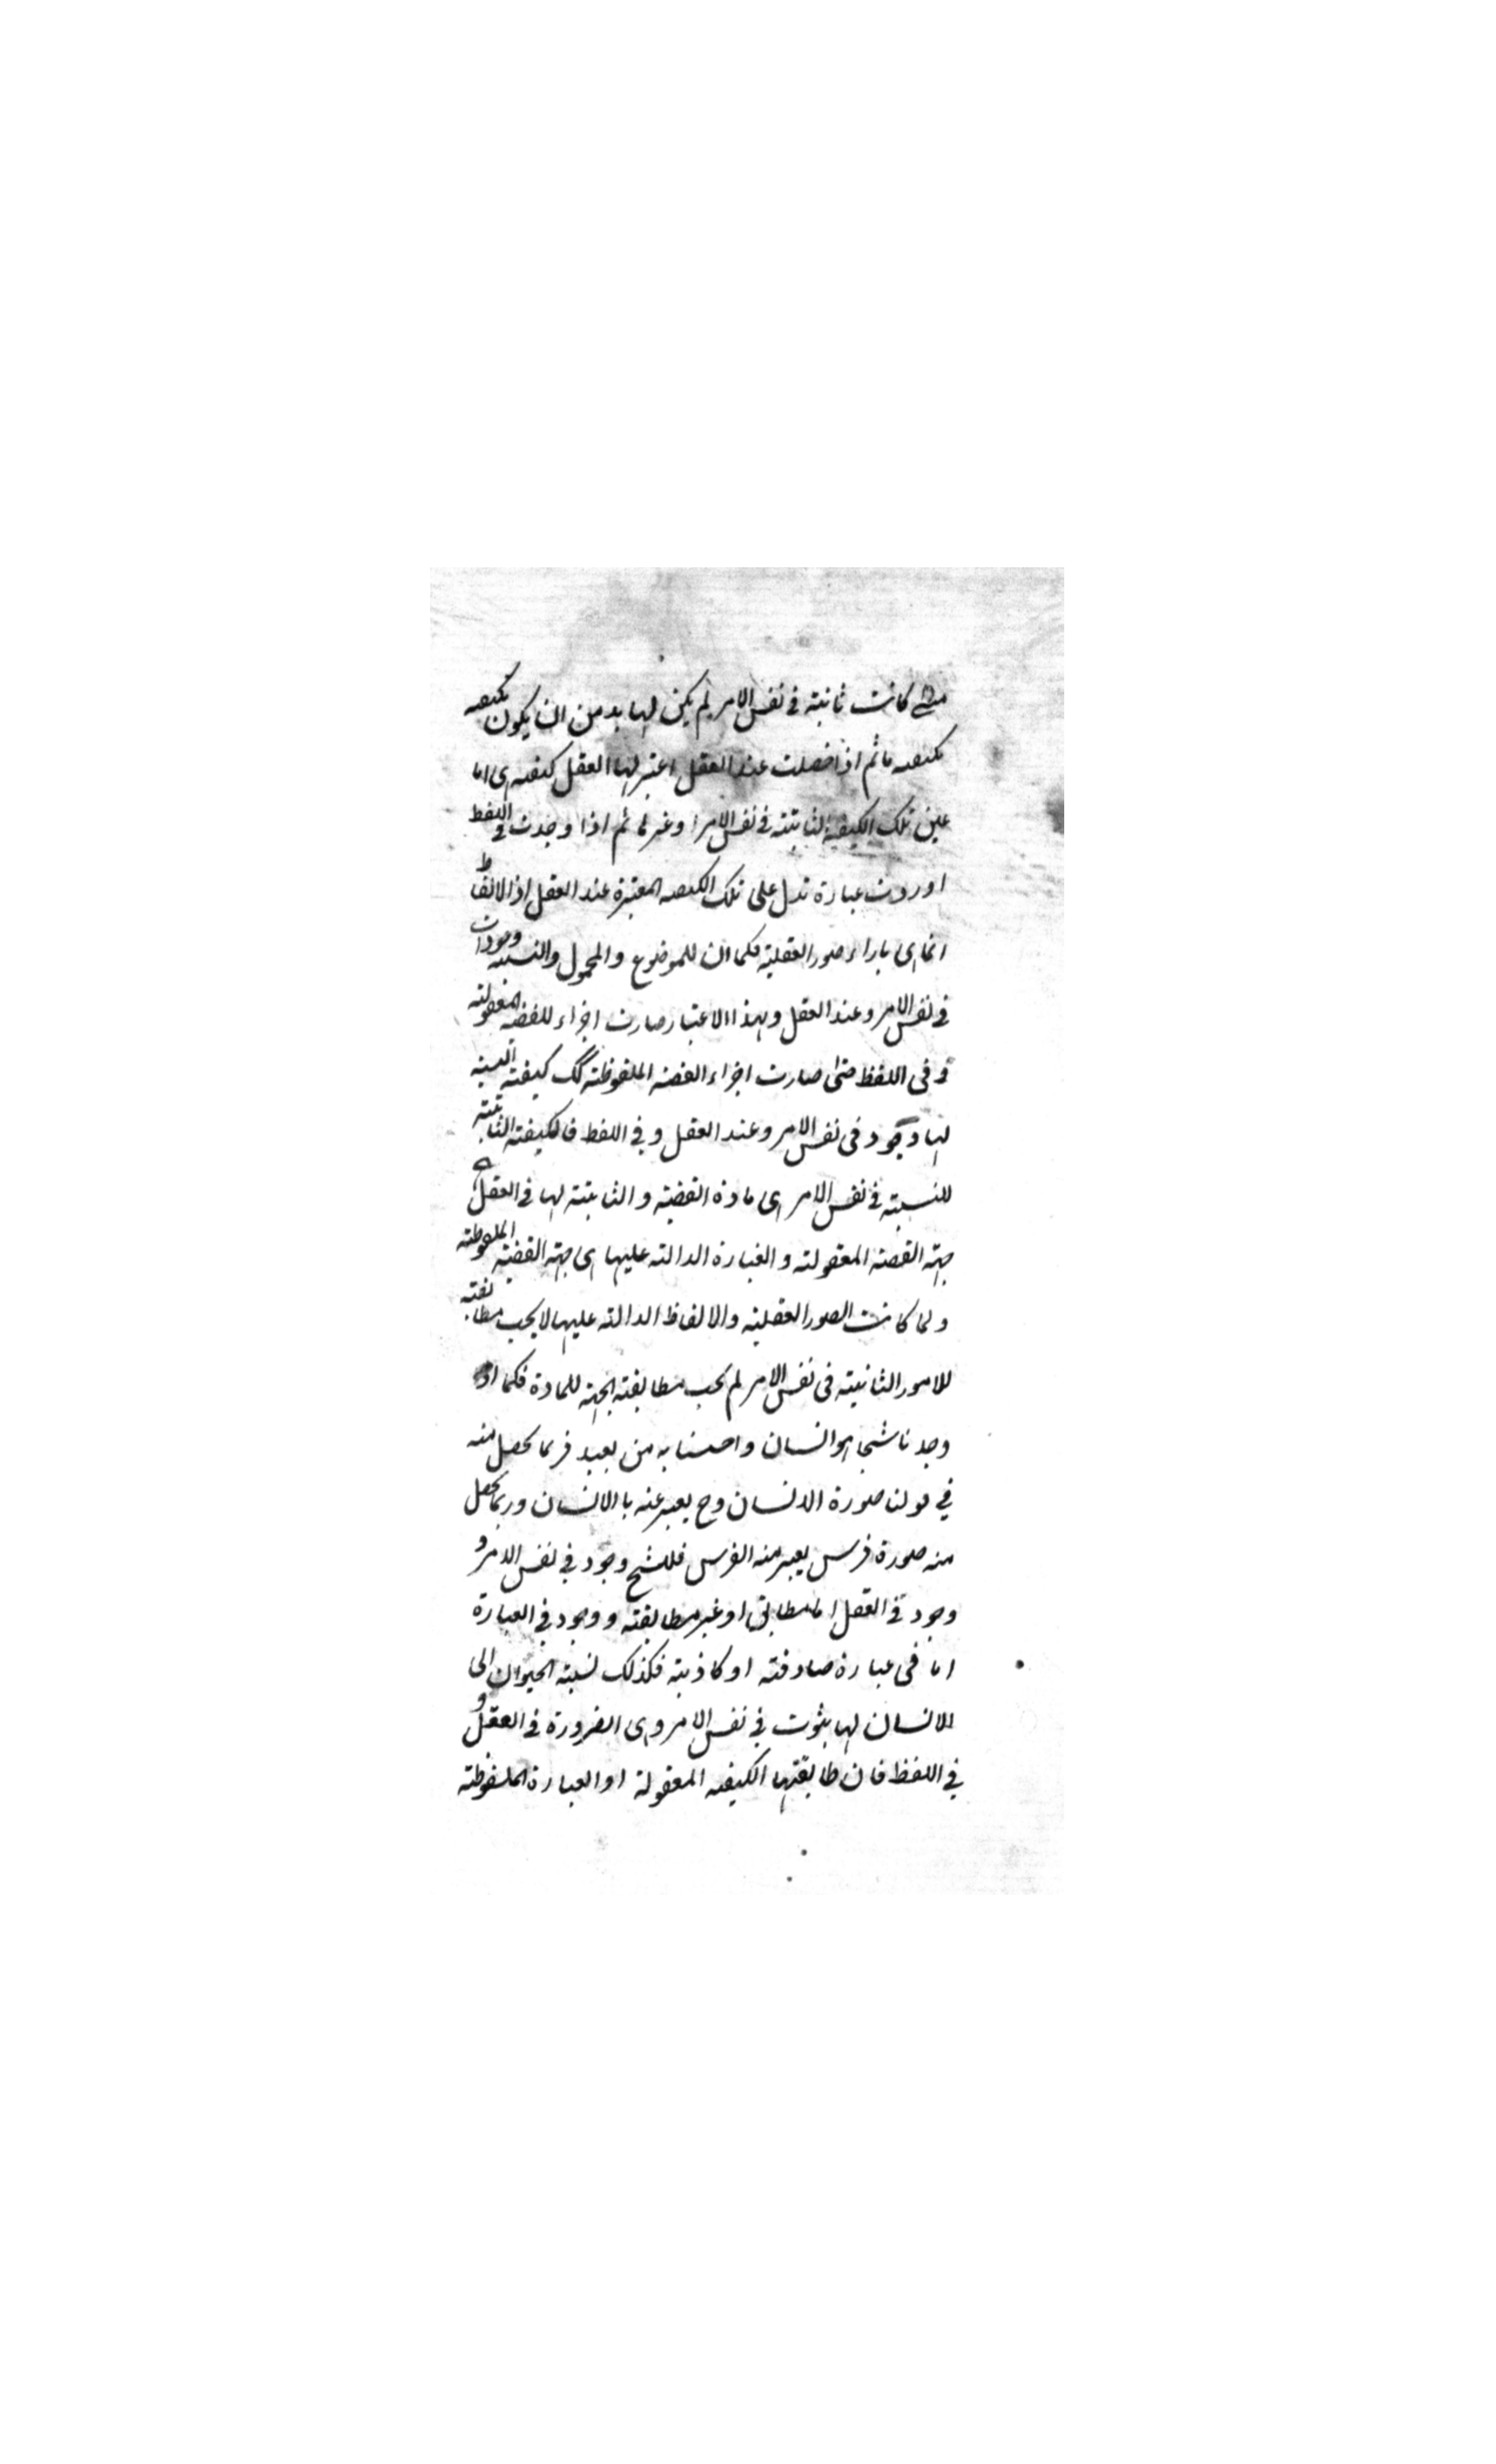 متى كانت ثابتة في نفس الامر لم يكن لها بد من ان يكون مكيفه
بكيفيه ما ثم اذا حصلت عند العقل اعتبر لها العقل كيفيه هى اما
عين تلك الكيفية الثابتة في نفس الامر او غيرها ثم اذا وجدت في اللفظ
اوردت عبارة تدل على تلك الكيفيه المعتبرة عند العقل اذ الالفاظ
انما هى بازاء صور العقلية فكما ان للموضوع والمحمول والنسبة وجودات
في نفس الامر وعند العقل وبهذا الاعتبار صارت اجزاء للقضية المعقولة
و في اللفظ حتى صارت اجزاء القضية الملفوظة كك كيفية النسبة
لها وجود في نفس الامر وعند العقل و في اللفظ فالكيفية الثابتة
للنسبة في نفس الامر هى مادة القضية و الثابتة لها في العقل هي
جهة القضية المعقولة و العبارة الدالة عليها هى جهة القضية الملفوظة
ولما كانت الصور العقلية والالفاظ الدالة عليها لا يجب مطابقة
للامور الثابتة في نفس الامر لم يجب مطابقة الجهة للمادة فكما اذا
وجدنا شبحا هو انسان واحسنا به من بعيد فربما يحصل منه
في صورة الانسان وح يعبر عنه با الانسان وربما يحصل
منه صورة فرس يعبر منه الفرس فللشبح وجود في نفس الامر و
وجود في العقل اما مطابق او غير مطابقة و وجود في العبارة
اما في عبارة صادقة او كاذبة فكذلك نسبة الحيوان الى
الانسان لها ثبوت في نفس الامر وهى الضرورة في العقل و
في اللفظ فان طابقتها الكيفيه المعقولة او العبارة الملفوظة